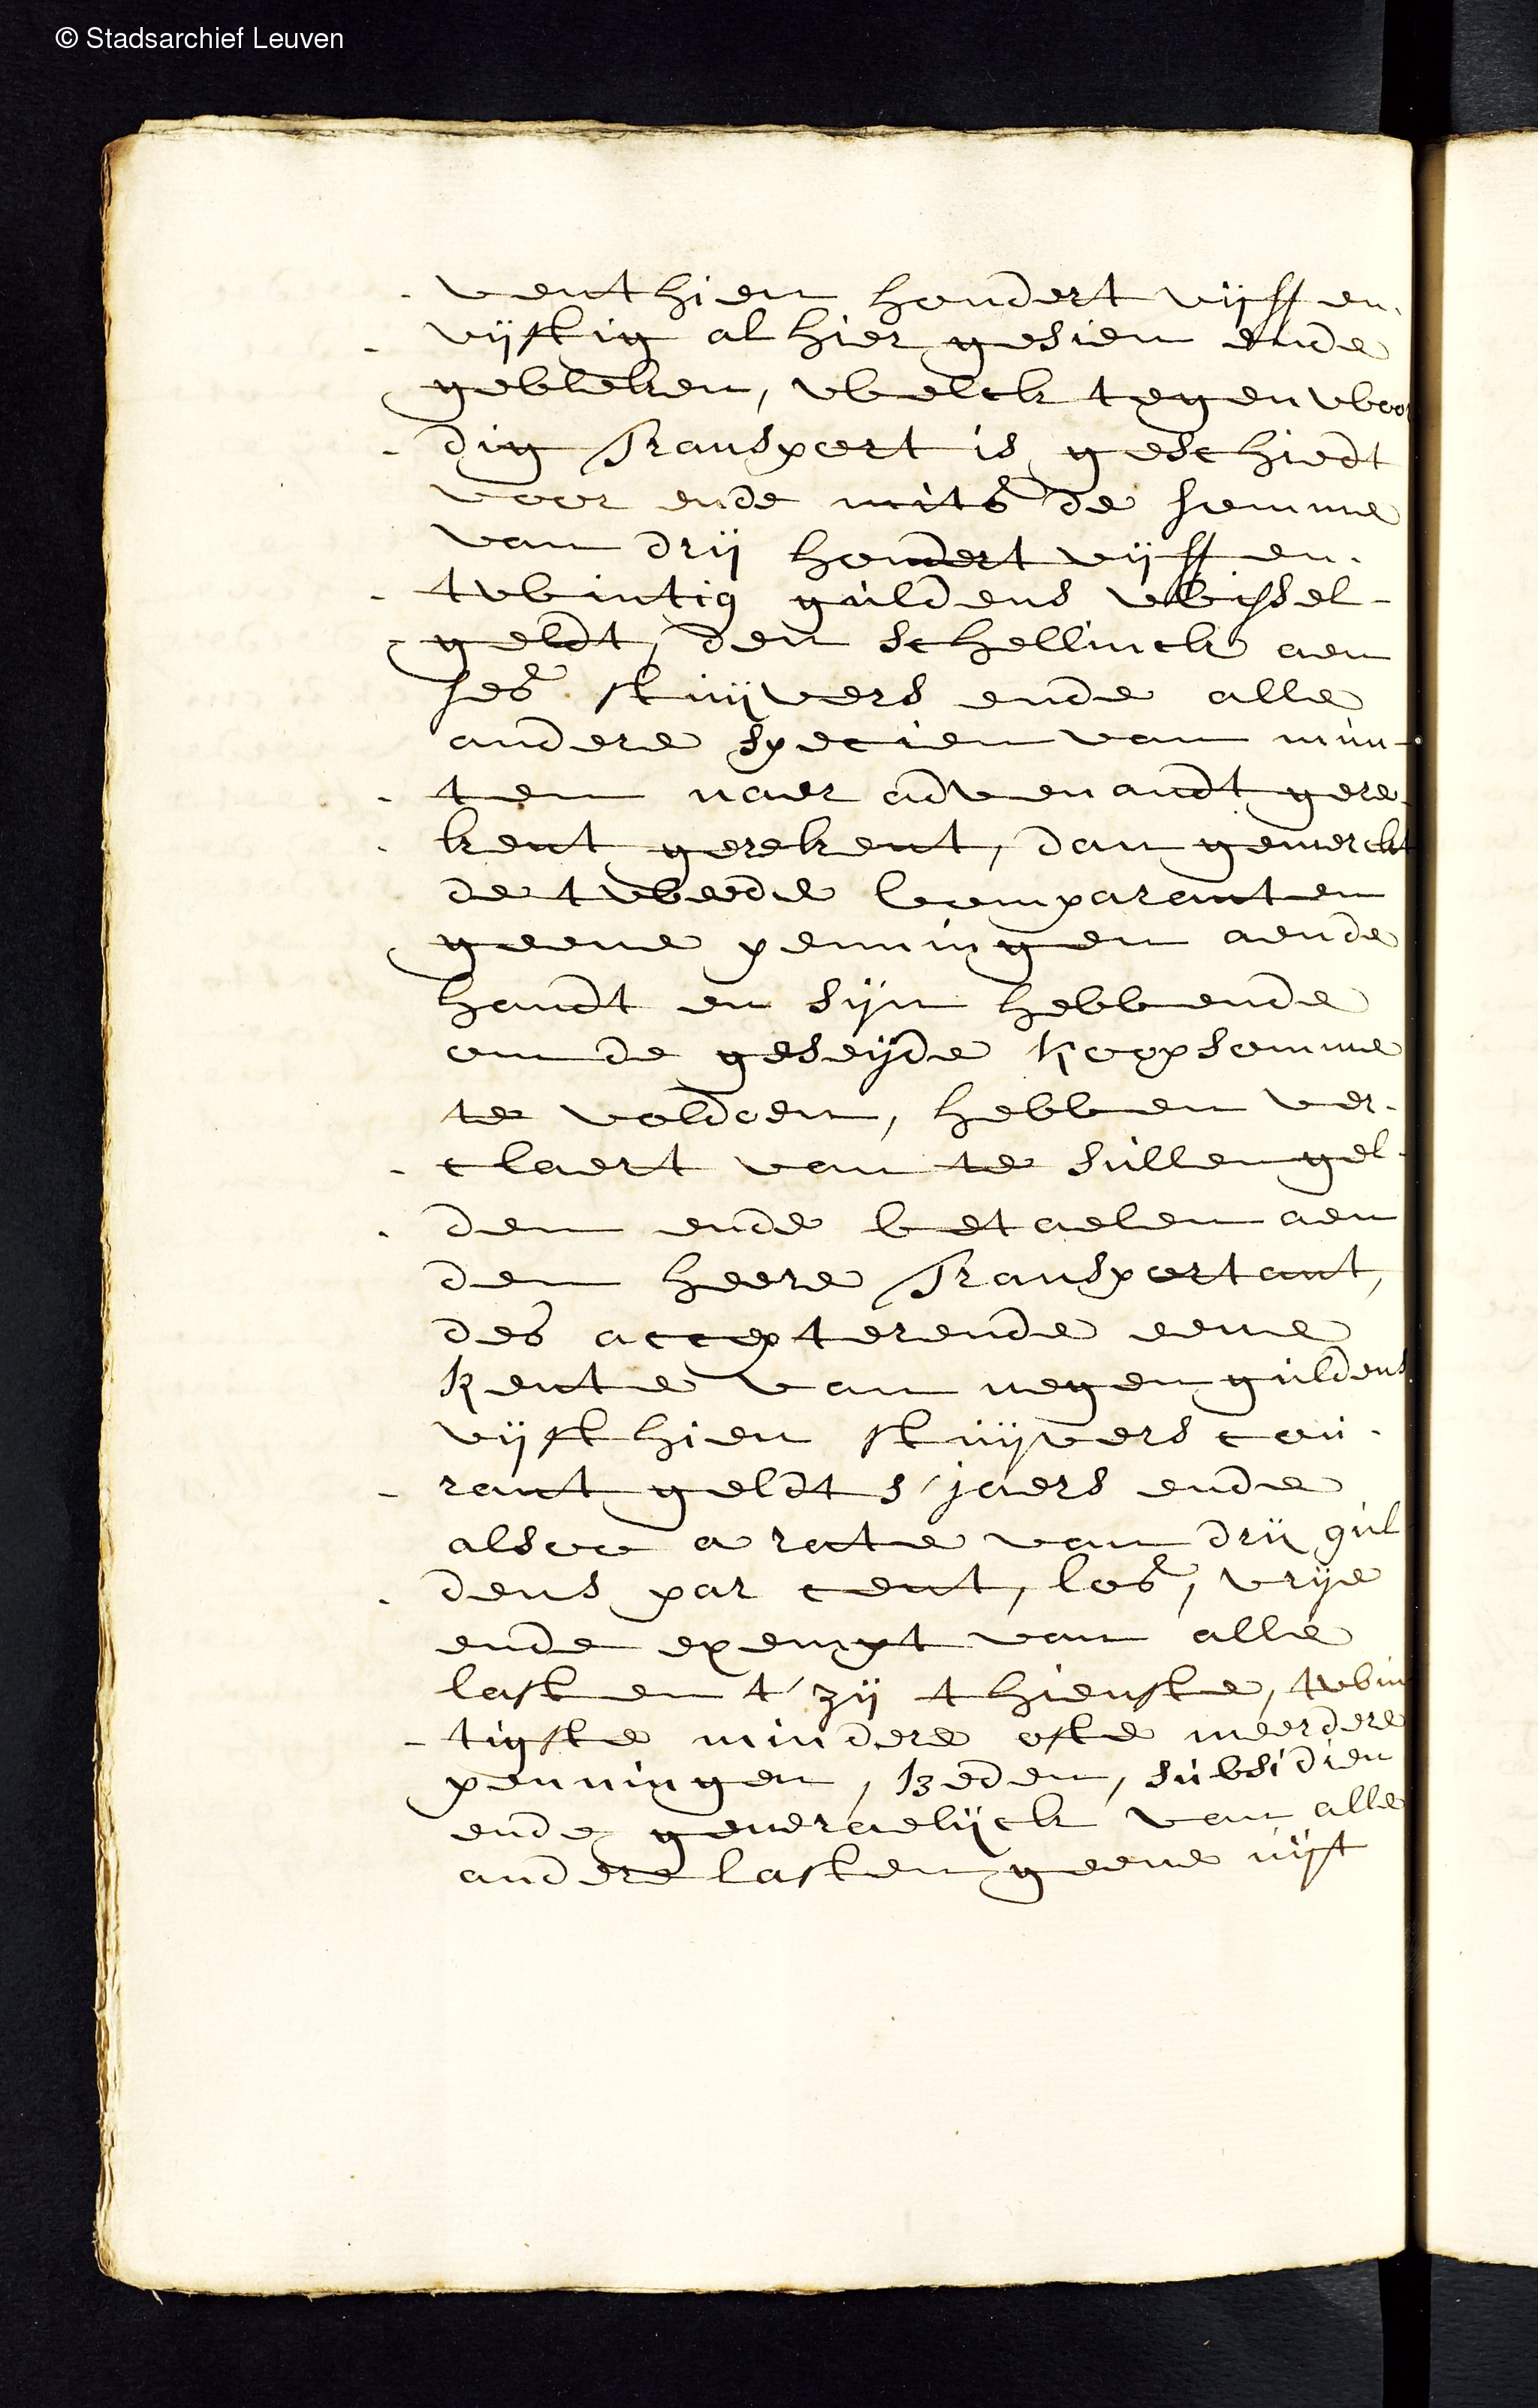 © Stadsarchief Leuven
- venthien hondert vijff en-
- vijftig alhier gesien ende
gebleken, welck tegenwoor
- dig Transport is geschiedt
voor ende mits de somme
van drij hondert vijff en-
- twintig guldens wissel-
- geldt, den schellinck aen
ses stuijvers ende alle
andere specien van mun-
- ten naer advenandt gere-
- kent gerekent, dan gemerckt
de tweede Comparanten
geene penningen aende
handt en sijn hebbende
om de geseijde koopsomme
te voldoen, hebben ver-
- claert van te sullen gel-
- den ende betaelen aen
den heere Transportant,
des accepterende eene
Rente van negen guldens
vijfthien stuijvers cou-
- rant geldt s'jaers ende
alsoo a rate van drij gul
- dens par cent, los, vrije
ende exempt van alle
lasten t'zij thienste, twin
- tigste mindere ofte meerdere
penningen, Beden, subsidien
ende generaelijck van alle
andere lasten geene uijt